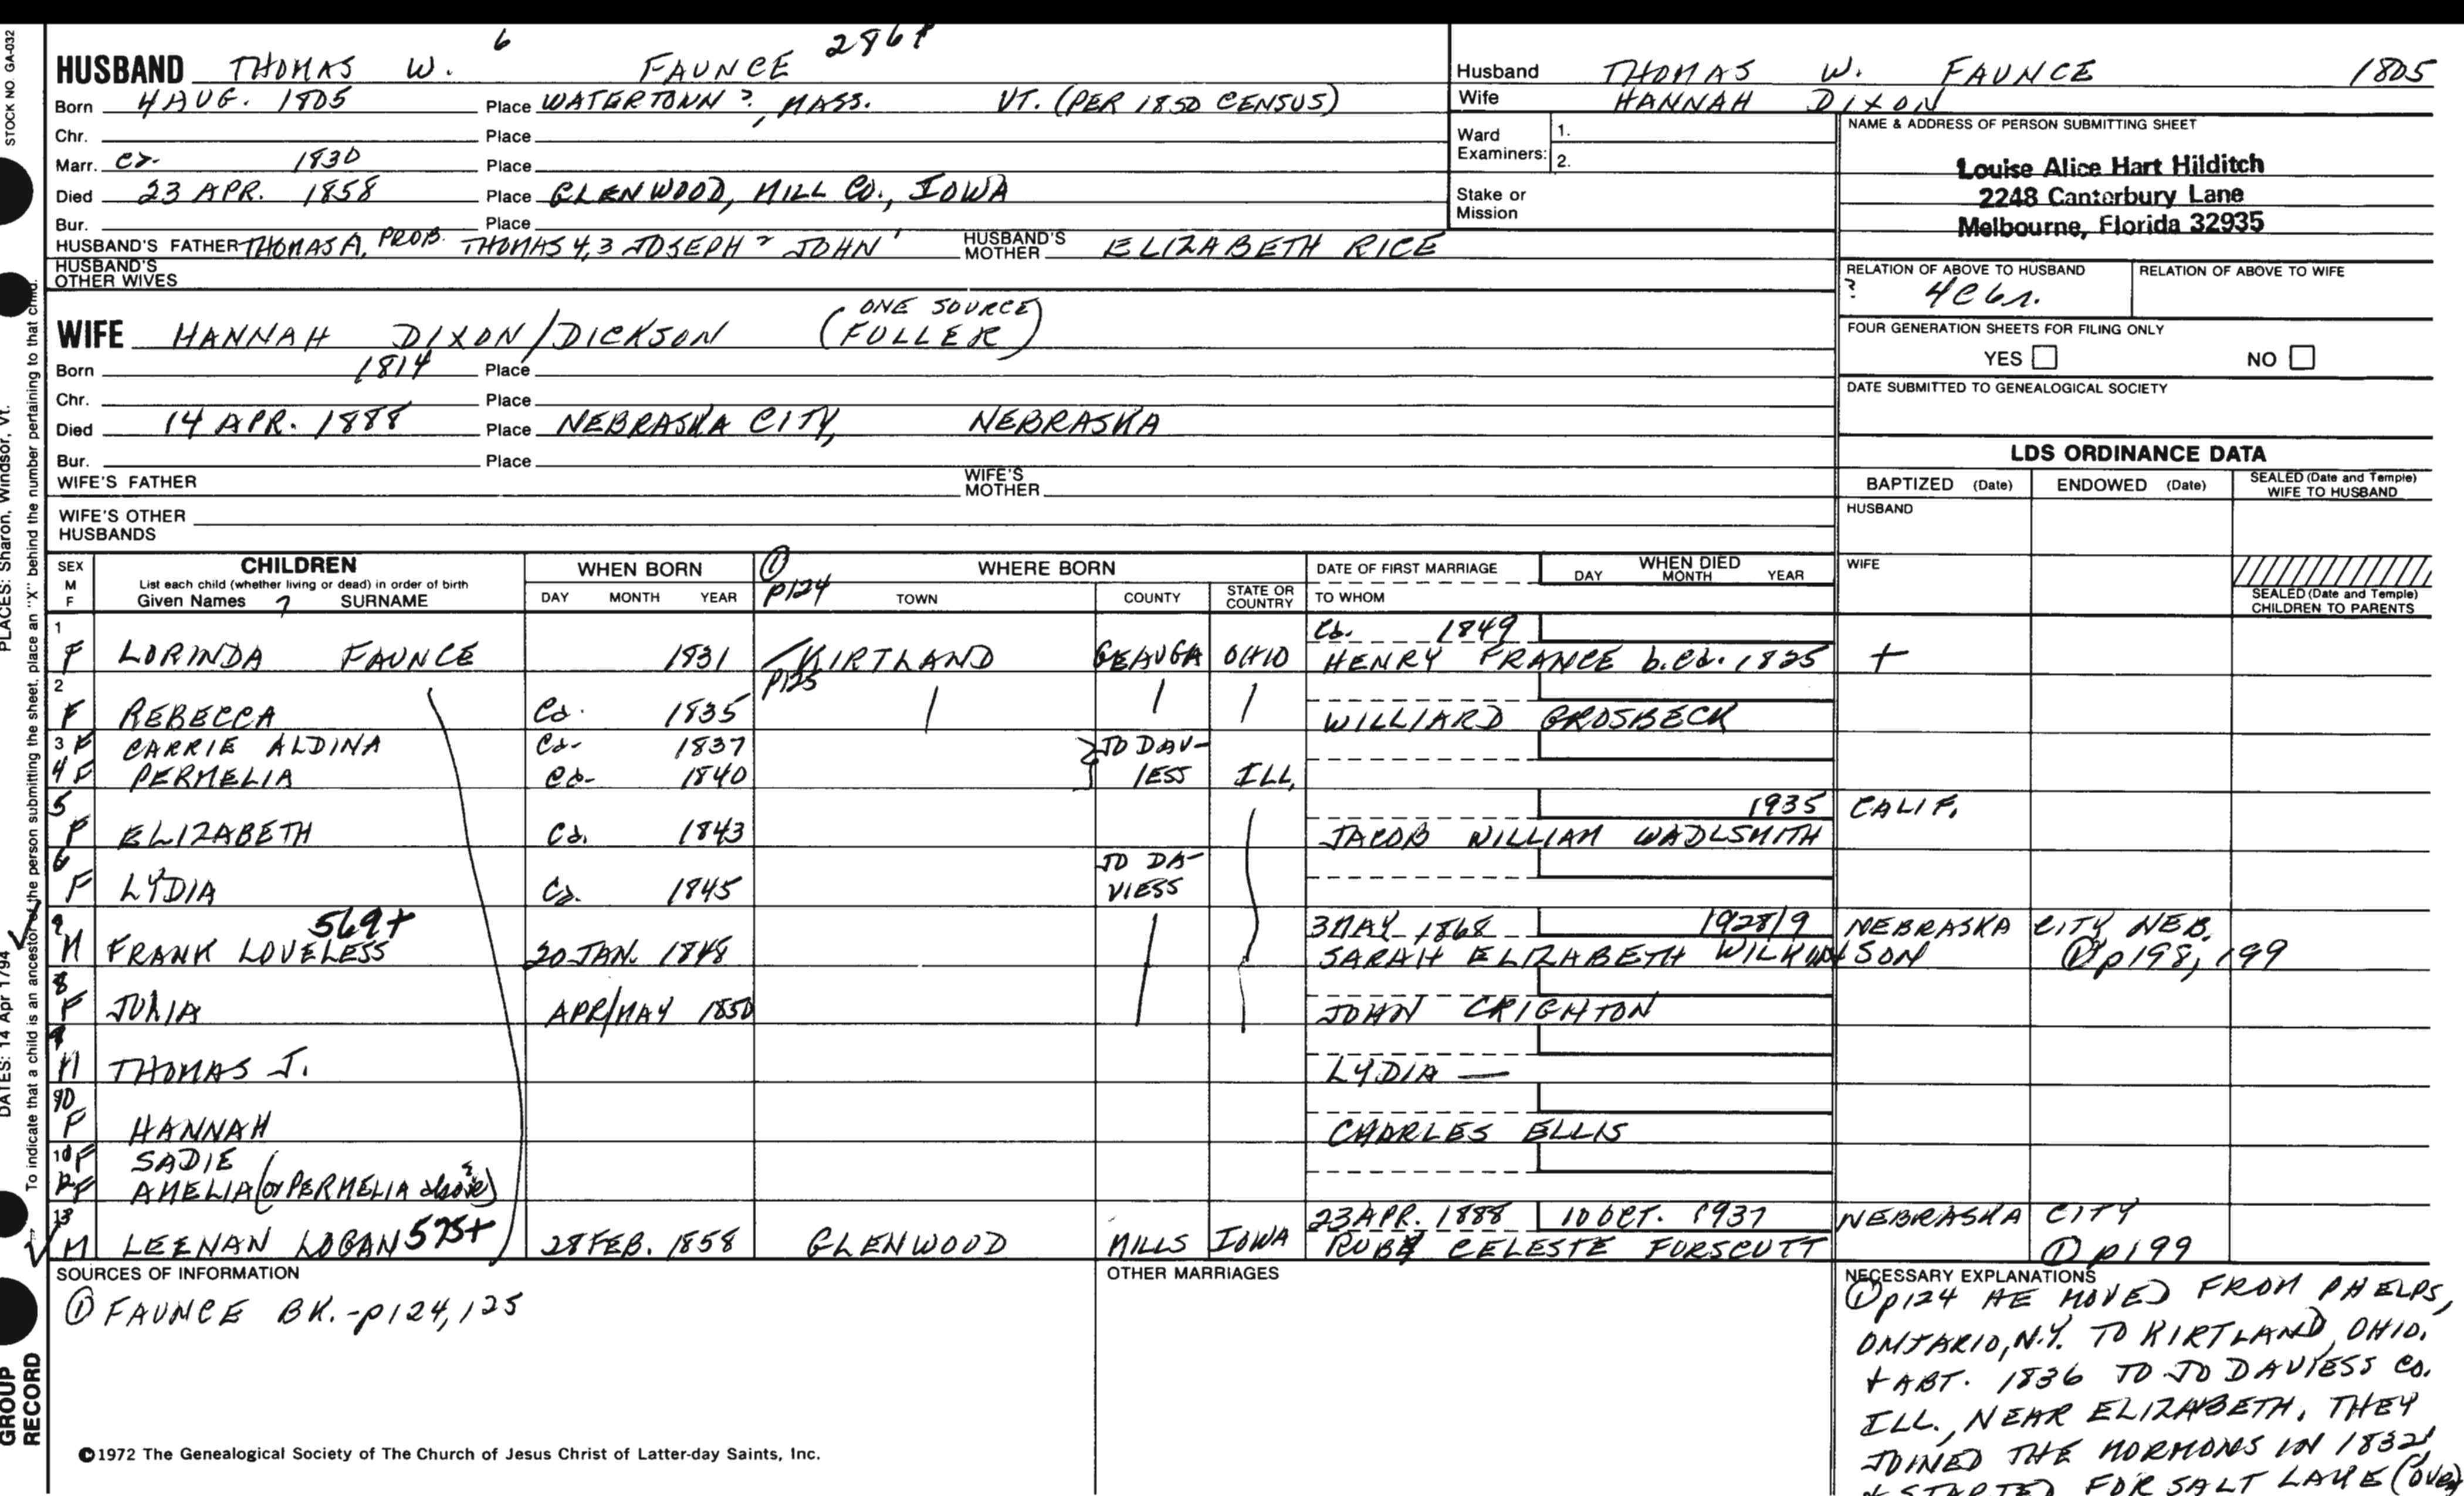 STOCK NO GA-032
HUSBAND THOMAS W. 6 FAUNCE 286+
Born 4 AUG. 1805 Place WATERTOWN ?, MASS. VT. (PER 1850 CENSUS)
Chr. Place
Marr. ca. 1830 Place
Died 23 APR. 1858 Place GLENWOOD, MILL CO., IOWA
Bur. Place
HUSBAND'S FATHER THOMAS A, PROB. THOMAS 4,3 JOSEPH 2 JOHN 1 HUSBAND'S MOTHER ELIZABETH RICE
HUSBAND'S OTHER WIVES
WIFE HANNAH DIXON/DICKSON (ONE SOURCE FULLER)
Born 1814 Place
Chr. Place
Died 14 APR. 1888 Place NEBRASKA CITY, NEBRASKA
Bur. Place
WIFE'S FATHER WIFE'S MOTHER
WIFE'S OTHER HUSBANDS
Husband THOMAS W. FAUNCE 1805
Wife HANNAH DIXON
Ward Examiners: 1.
2.
Stake or Mission
NAME & ADDRESS OF PERSON SUBMITTING SHEET
Louise Alice Hart Hilditch
2248 Canterbury Lane
Melbourne, Florida 32935
RELATION OF ABOVE TO HUSBAND RELATION OF ABOVE TO WIFE
? 4C6r.
FOUR GENERATION SHEETS FOR FILING ONLY
YES NO
DATE SUBMITTED TO GENEALOGICAL SOCIETY
LDS ORDINANCE DATA
BAPTIZED (Date) ENDOWED (Date) SEALED (Date and Temple) WIFE TO HUSBAND
HUSBAND
WIFE
SEALED (Date and Temple) CHILDREN TO PARENTS
SEX M F CHILDREN WHEN BORN ① p124 WHERE BORN DATE OF FIRST MARRIAGE WHEN DIED
List each child (whether living or dead) in order of birth
Given Names 7 SURNAME DAY MONTH YEAR TOWN COUNTY STATE OR COUNTRY TO WHOM DAY MONTH YEAR
1 F LORINDA FAUNCE 1831 KIRTLAND GEAUGA OHIO ca. 1849 HENRY FRANCE b.ca. 1825 +
2 F REBECCA ca. 1835 p125 WILLIARD GROSBECK
3 F CARRIE ALDINA ca. 1837 JO DAV-
4 F PERMELIA ca. 1840 IESS ILL.
5 F ELIZABETH ca. 1843 1935 CALIF. JACOB WILLIAM WADLSMITH
6 F LYDIA ca. 1845 JO DA-VIESS
M FRANK LOVELESS 569+ 20 JAN. 1848 3 MAY 1868 1928/9 NEBRASKA CITY NEB. SARAH ELIZABETH WILKINSON ① p198, 199
8 F JULIA APR/MAY 1850 JOHN CRIGHTON
9 M THOMAS J. LYDIA —
10 F HANNAH CHARLES ELLIS
F SADIE
12 F AMELIA (or PERMELIA above?)
13 M LEENAN LOGAN 575+ 28 FEB. 1858 GLENWOOD MILLS IOWA 23 APR. 1888 10 OCT. 1937 NEBRASKA CITY RUBY CELESTE FORSCUTT ① p199
SOURCES OF INFORMATION
① FAUNCE BK.-p124, 125
OTHER MARRIAGES
NECESSARY EXPLANATIONS
① p124 HE MOVED FROM PHELPS,
ONTARIO, N.Y. TO KIRTLAND, OHIO.
+ ABT. 1836 TO JO DAVIESS CO.
ILL., NEAR ELIZABETH. THEY
JOINED THE MORMONS IN 1832
+ STARTED FOR SALT LAKE (over)
©1972 The Genealogical Society of The Church of Jesus Christ of Latter-day Saints, Inc.
PLACES: Sharon, Windsor, Vt.
DATES: 14 Apr 1794
To indicate that a child is an ancestor of the person submitting the sheet, place an "X" behind the number pertaining to that child.
GROUP
RECORD